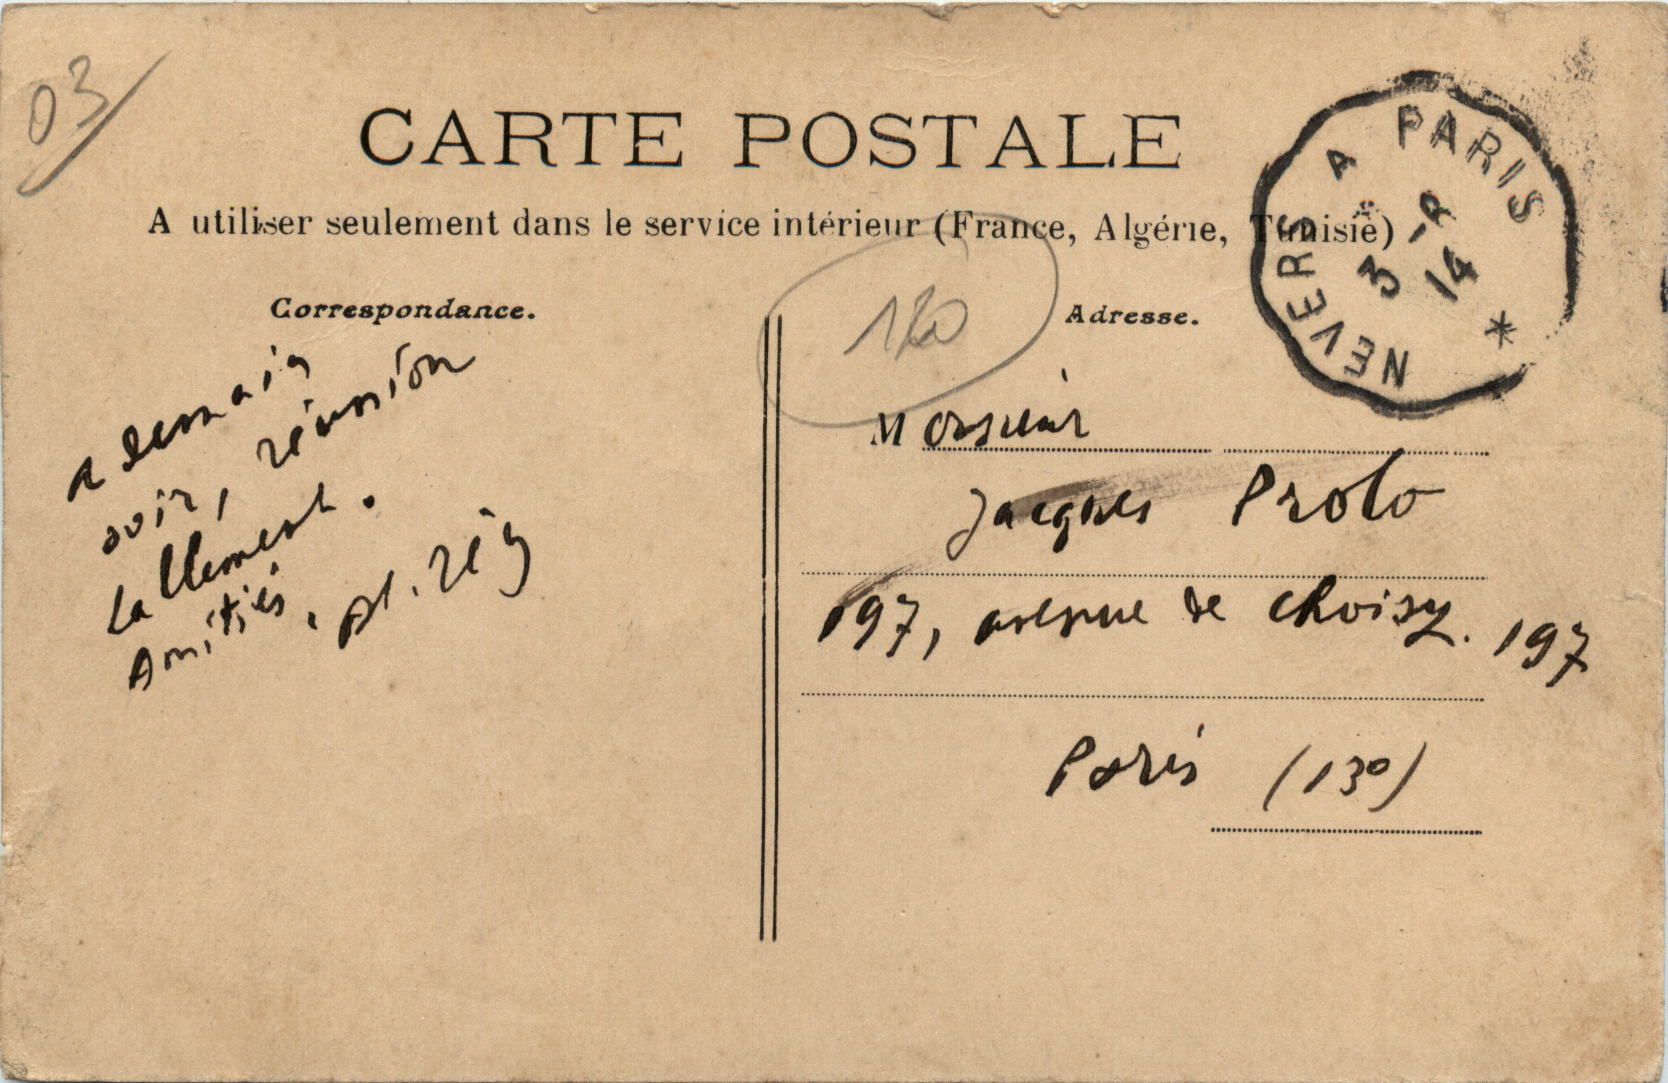 03
CARTE POSTALE
A utiliser seulement dans le service intérieur (France, Algérie, Tunisie)
NEVERS A PARIS
3 -8
14
*
Correspondance.
Adresse.
120
A demain
soir, réunion
Lallement.
Amitiés.
Monsieur
Jacques Prolo
197, avenue de Choisy. 197
Paris (13e)